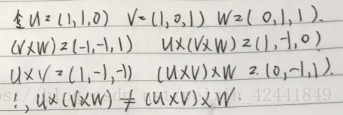 全U=(1,1,0) V=(1,0,1) W=(0,1,1).
(V×W)=(-1,-1,1) U×(V×W)=(1,-1,0)
U×V=(1,-1,-1) (U×V)×W=(0,-1,1).
∴, U×(V×W) ≠ (U×V)×W.
42441849